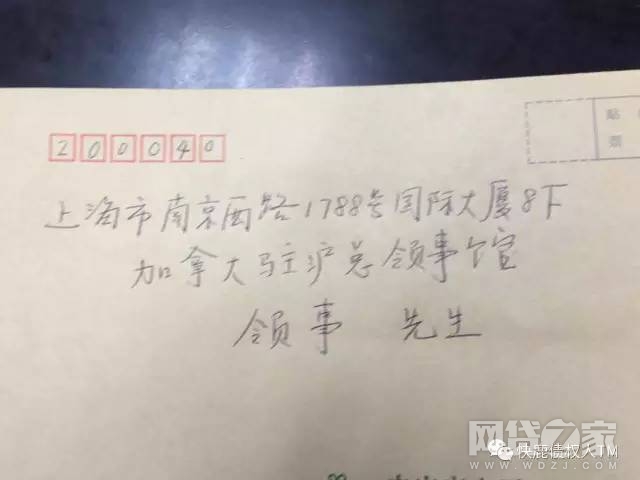 贴
票
200040
上海市南京西路1788号国际大厦8下
加拿大驻沪总领事馆
领事 先生
网贷之家
快鹿债权人TM
WWW.WDZJ.COM